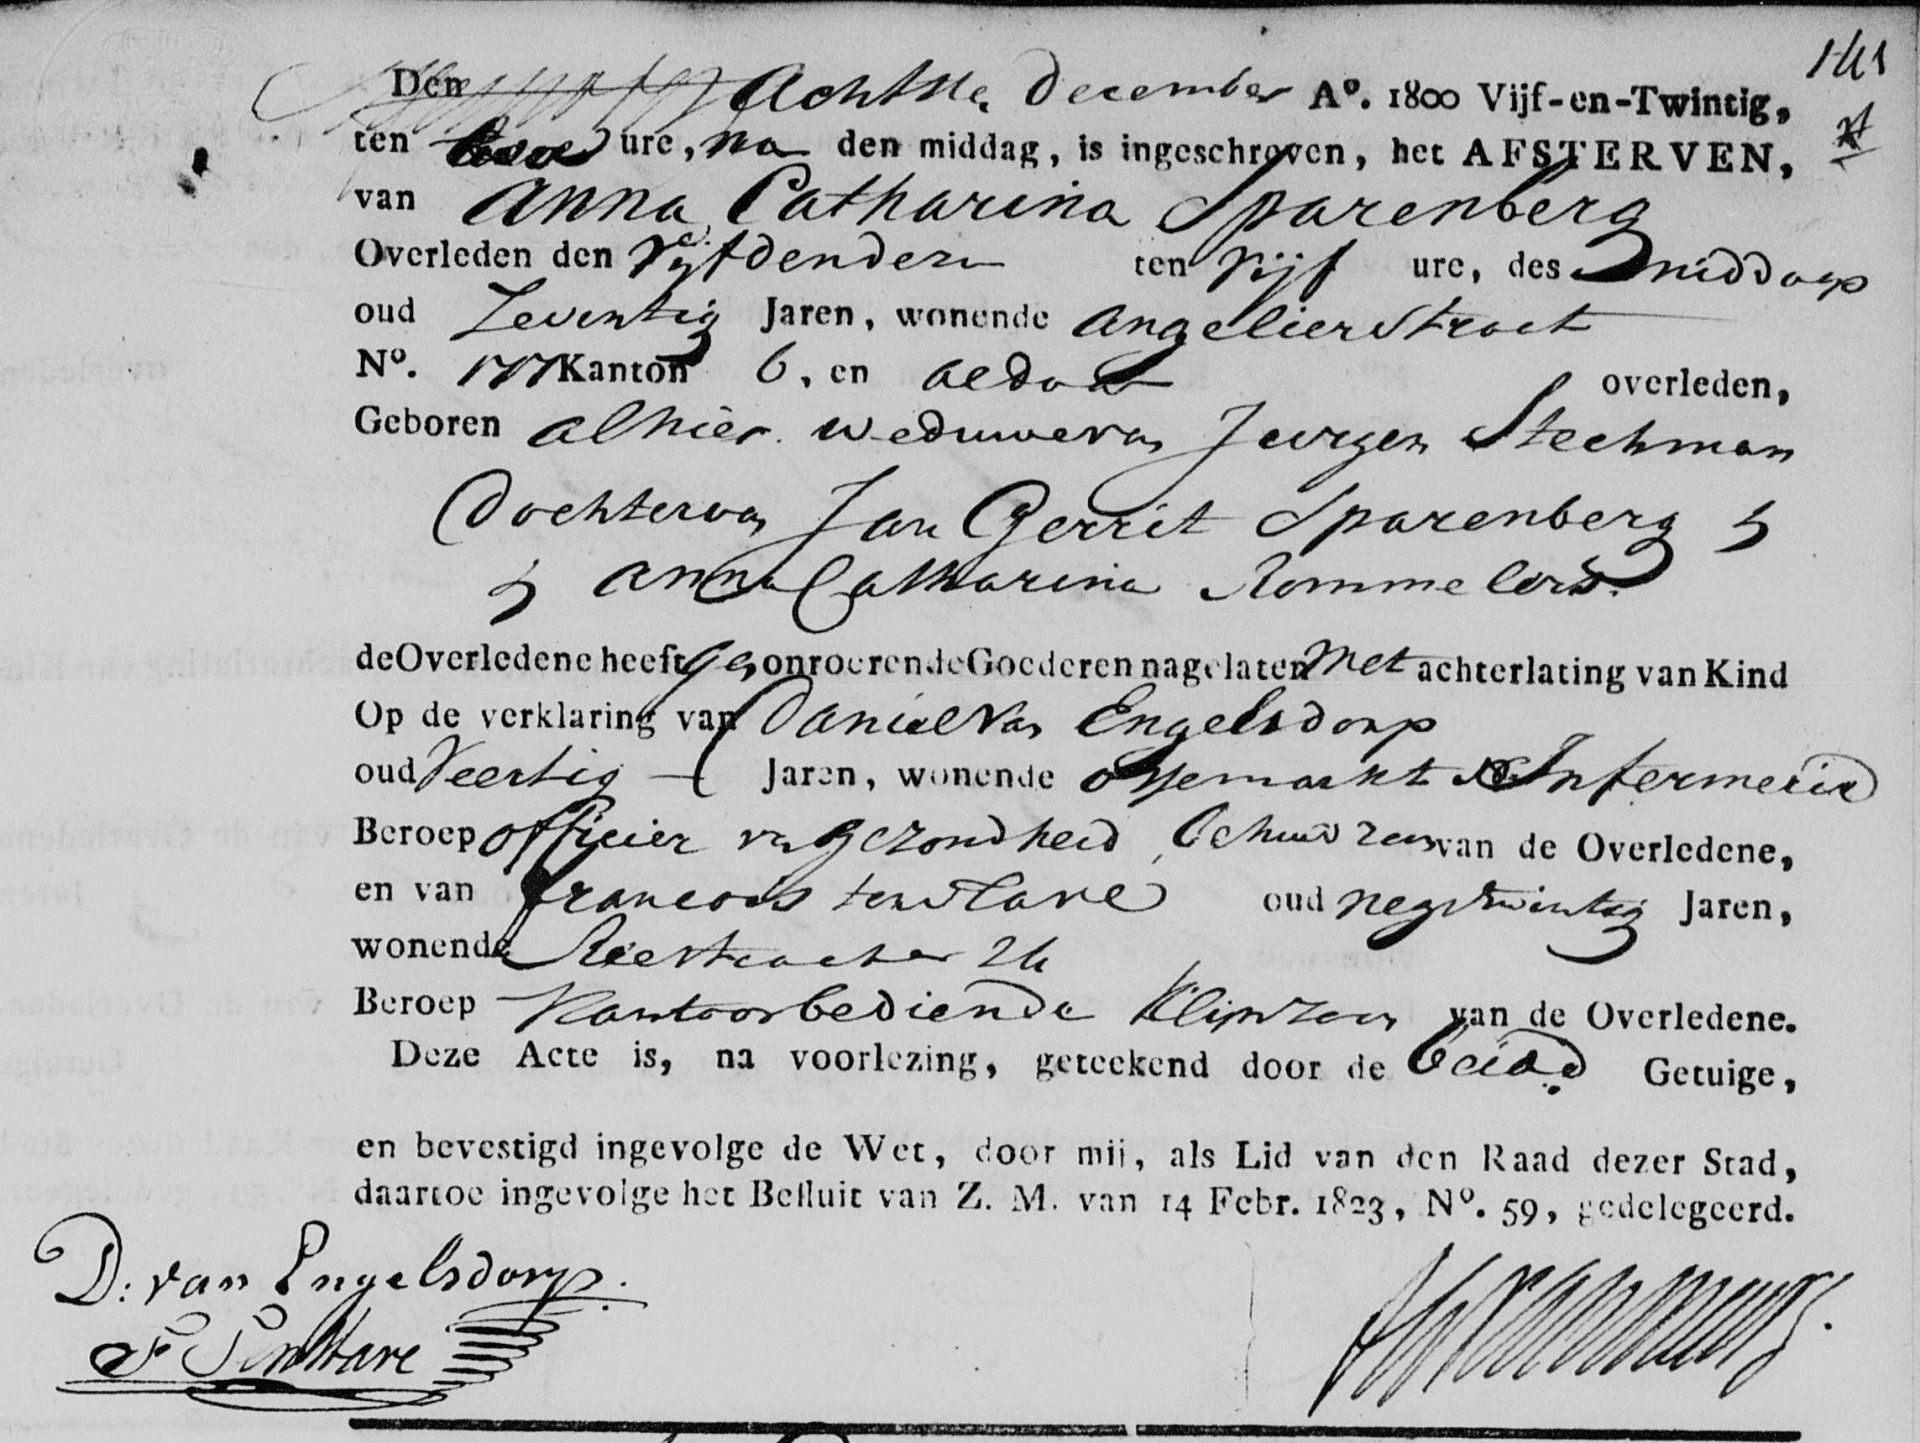 141
Den Achtste december Aº. 1800 Vijf-en-Twintig,
ten twee ure, na den middag, is ingeschreven, het AFSTERVEN,
van Anna Catharina Sparenberg
Overleden den Vijfdendezer ten vijf ure, des middags
oud Zeventig Jaren, wonende Angelierstraat
Nº. 177 Kanton 6, en aldaar overleden,
Geboren alhier weduwe van Jurgen Stechman
dochter van Jan Gerrit Sparenberg &
& Anna Catharina Rommelers.
de Overledene heeft geen onroerende Goederen nagelaten Met achterlating van Kind
Op de verklaring van Daniel van Engelsdorp
oud Veertig Jaren, wonende ossemarkt Infermerie
Beroep officier van gezondheid, behuwdzoon van de Overledene,
en van francois ten Have oud negentwintig Jaren,
wonende Reestraat 24
Beroep Kantoorbediende Kleinzoon van de Overledene.
Deze Acte is, na voorlezing, geteekend door de beide Getuige,
en bevestigd ingevolge de Wet, door mij, als Lid van den Raad dezer Stad,
daartoe ingevolge het Besluit van Z. M. van 14 Febr. 1823, Nº. 59, gedelegeerd.
D. van Engelsdorp.
F Ten Have